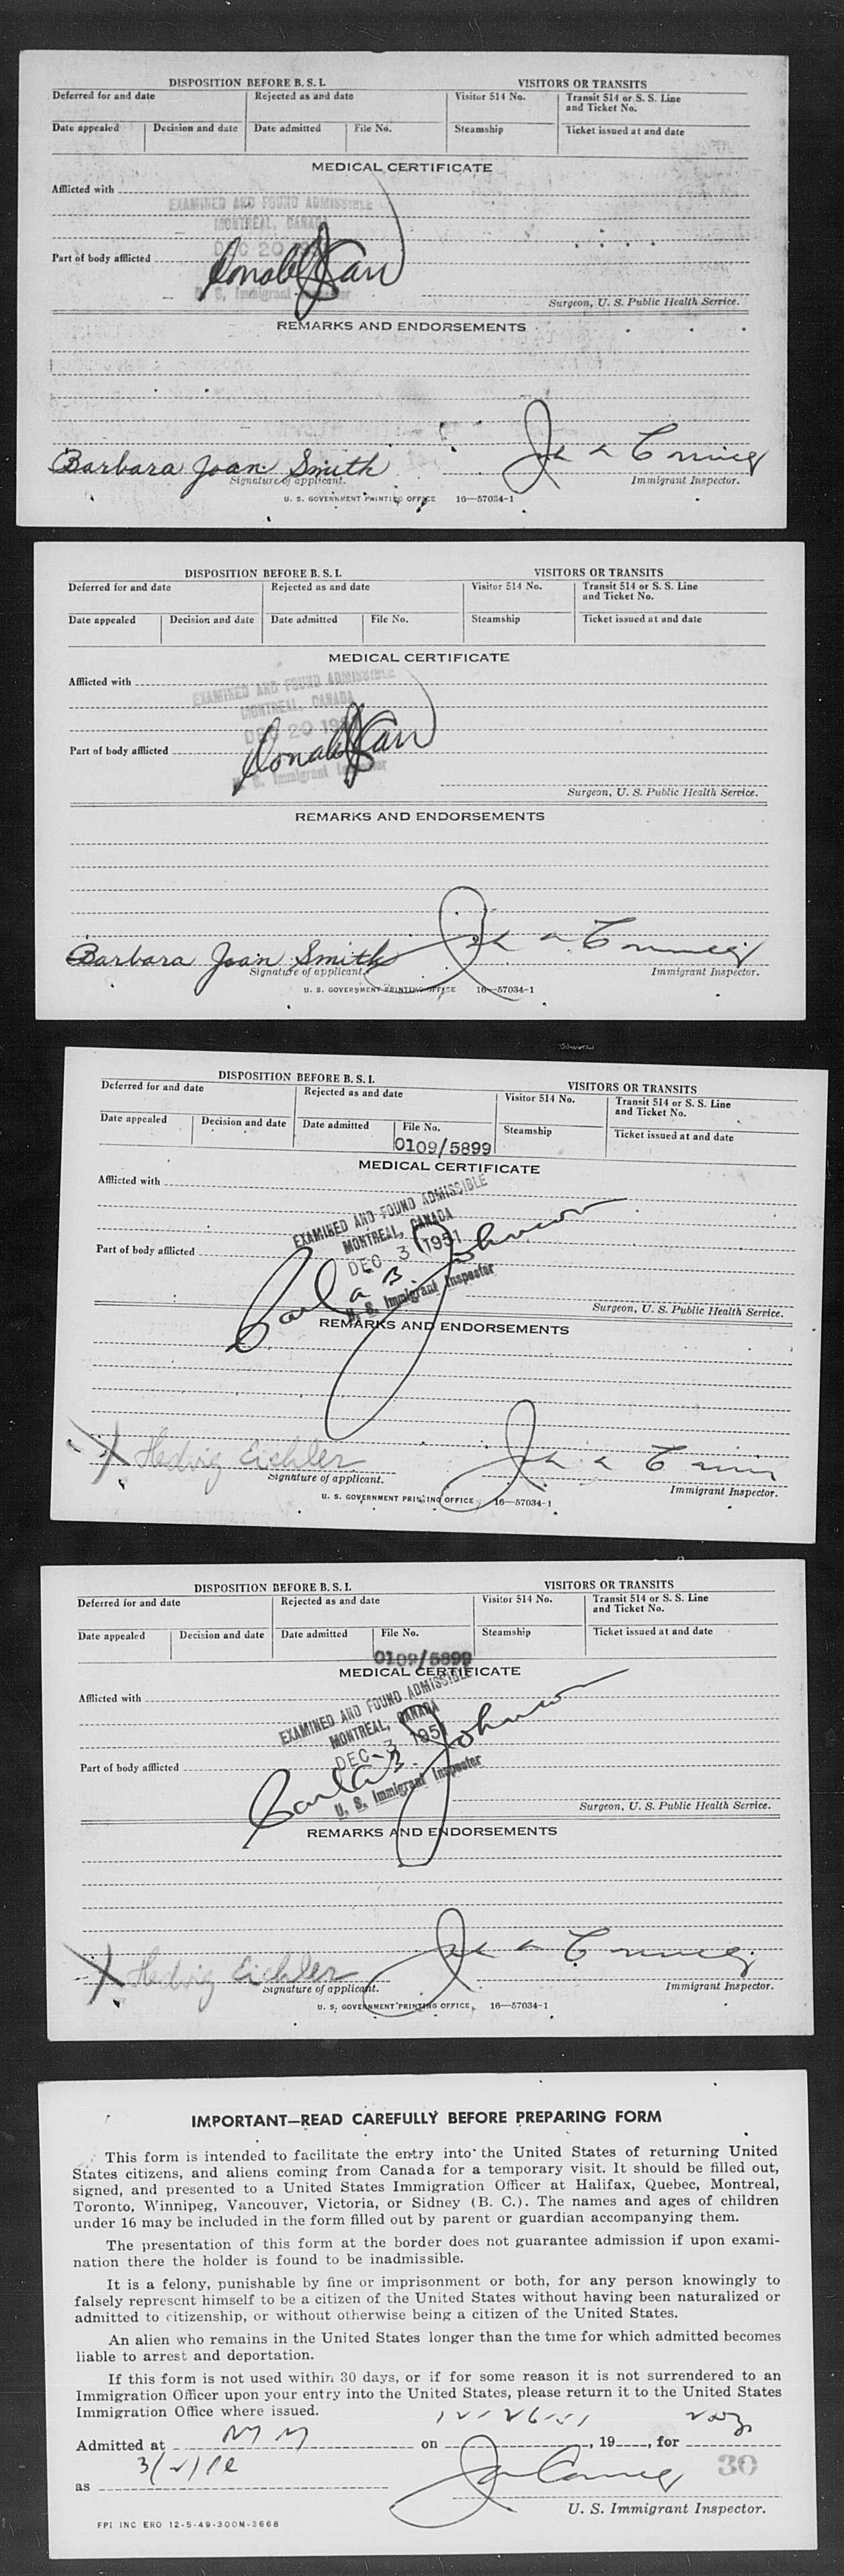 DISPOSITION BEFORE B. S. I. VISITORS OR TRANSITS
Deferred for and date Rejected as and date Visitor 514 No. Transit 514 or S. S. Line and Ticket No.
Date appealed Decision and date Date admitted File No. Steamship Ticket issued at and date
MEDICAL CERTIFICATE
Afflicted with
EXAMINED AND FOUND ADMISSIBLE
MONTREAL, CANADA
DEC 20
Part of body afflicted
U. S. Immigrant Inspector
Surgeon, U. S. Public Health Service.
REMARKS AND ENDORSEMENTS
Barbara Joan Smith
Signature of applicant. Immigrant Inspector.
U. S. GOVERNMENT PRINTING OFFICE 16—57034-1
DISPOSITION BEFORE B. S. I. VISITORS OR TRANSITS
Deferred for and date Rejected as and date Visitor 514 No. Transit 514 or S. S. Line and Ticket No.
Date appealed Decision and date Date admitted File No. Steamship Ticket issued at and date
MEDICAL CERTIFICATE
Afflicted with
EXAMINED AND FOUND ADMISSIBLE
MONTREAL, CANADA
DEC 20
Part of body afflicted
U. S. Immigrant Inspector
Surgeon, U. S. Public Health Service.
REMARKS AND ENDORSEMENTS
Barbara Joan Smith
Signature of applicant. Immigrant Inspector.
U. S. GOVERNMENT PRINTING OFFICE 16—57034-1
DISPOSITION BEFORE B. S. I. VISITORS OR TRANSITS
Deferred for and date Rejected as and date Visitor 514 No. Transit 514 or S. S. Line and Ticket No.
Date appealed Decision and date Date admitted File No. Steamship Ticket issued at and date
0109/5899
MEDICAL CERTIFICATE
Afflicted with
EXAMINED AND FOUND ADMISSIBLE
MONTREAL, CANADA
Part of body afflicted
DEC 3 1951
Carl a B. Johnson
U. S. Immigrant Inspector
Surgeon, U. S. Public Health Service.
REMARKS AND ENDORSEMENTS
X Hedwig Eichler
Signature of applicant. Immigrant Inspector.
U. S. GOVERNMENT PRINTING OFFICE 16—57034-1
DISPOSITION BEFORE B. S. I. VISITORS OR TRANSITS
Deferred for and date Rejected as and date Visitor 514 No. Transit 514 or S. S. Line and Ticket No.
Date appealed Decision and date Date admitted File No. Steamship Ticket issued at and date
0109/5899
MEDICAL CERTIFICATE
Afflicted with
EXAMINED AND FOUND ADMISSIBLE
MONTREAL, CANADA
DEC -3 1951
Part of body afflicted
Carl a B. Johnson
U. S. Immigrant Inspector
Surgeon, U. S. Public Health Service.
REMARKS AND ENDORSEMENTS
X Hedwig Eichler
Signature of applicant. Immigrant Inspector.
U. S. GOVERNMENT PRINTING OFFICE 16—57034-1
IMPORTANT—READ CAREFULLY BEFORE PREPARING FORM
This form is intended to facilitate the entry into the United States of returning United
States citizens, and aliens coming from Canada for a temporary visit. It should be filled out,
signed, and presented to a United States Immigration Officer at Halifax, Quebec, Montreal,
Toronto, Winnipeg, Vancouver, Victoria, or Sidney (B. C.). The names and ages of children
under 16 may be included in the form filled out by parent or guardian accompanying them.
The presentation of this form at the border does not guarantee admission if upon exami-
nation there the holder is found to be inadmissible.
It is a felony, punishable by fine or imprisonment or both, for any person knowingly to
falsely represent himself to be a citizen of the United States without having been naturalized or
admitted to citizenship, or without otherwise being a citizen of the United States.
An alien who remains in the United States longer than the time for which admitted becomes
liable to arrest and deportation.
If this form is not used within 30 days, or if for some reason it is not surrendered to an
Immigration Officer upon your entry into the United States, please return it to the United States
Immigration Office where issued.
12-26-51
Admitted at on , 19 , for
30
as
U. S. Immigrant Inspector.
FPI INC ERO 12-5-49-300M-3668